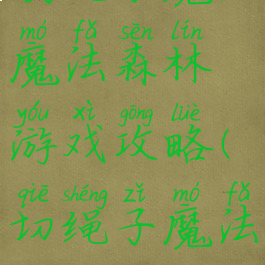 mó fǎ sēn lín
魔法森林
yóu xì gōng lüè
游戏攻略(
qiē shéng zǐ mó fǎ
切绳子魔法